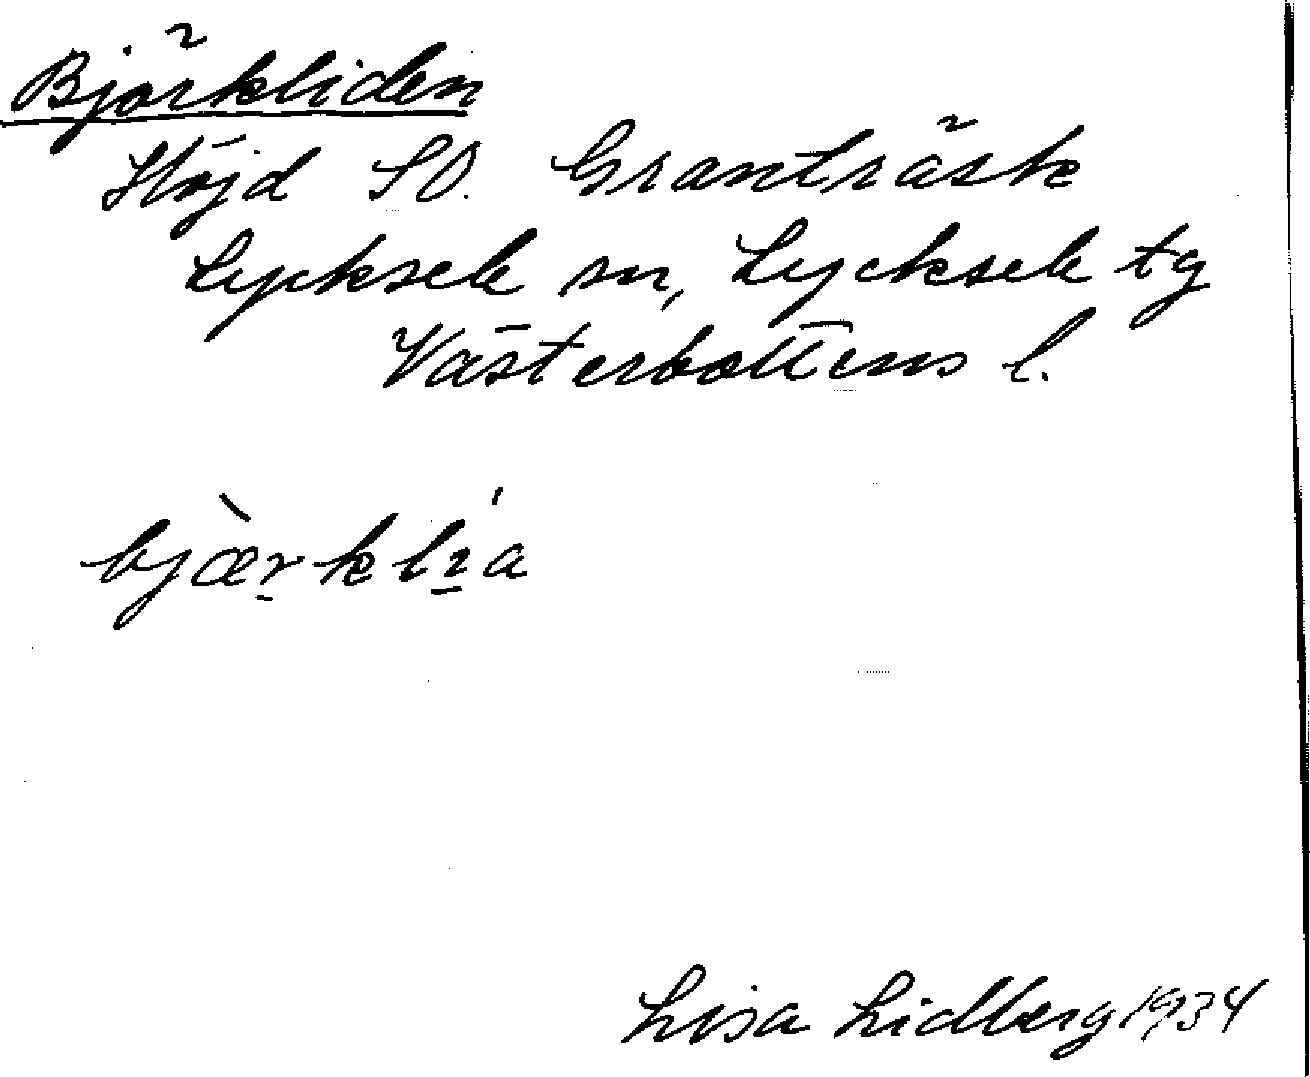 Björkliden
Höjd SO. Granträsk
Lycksele sn, Lycksele tg
Västerbottens l.
bjæ̀rklı́a
Lisa Lidberg 1934